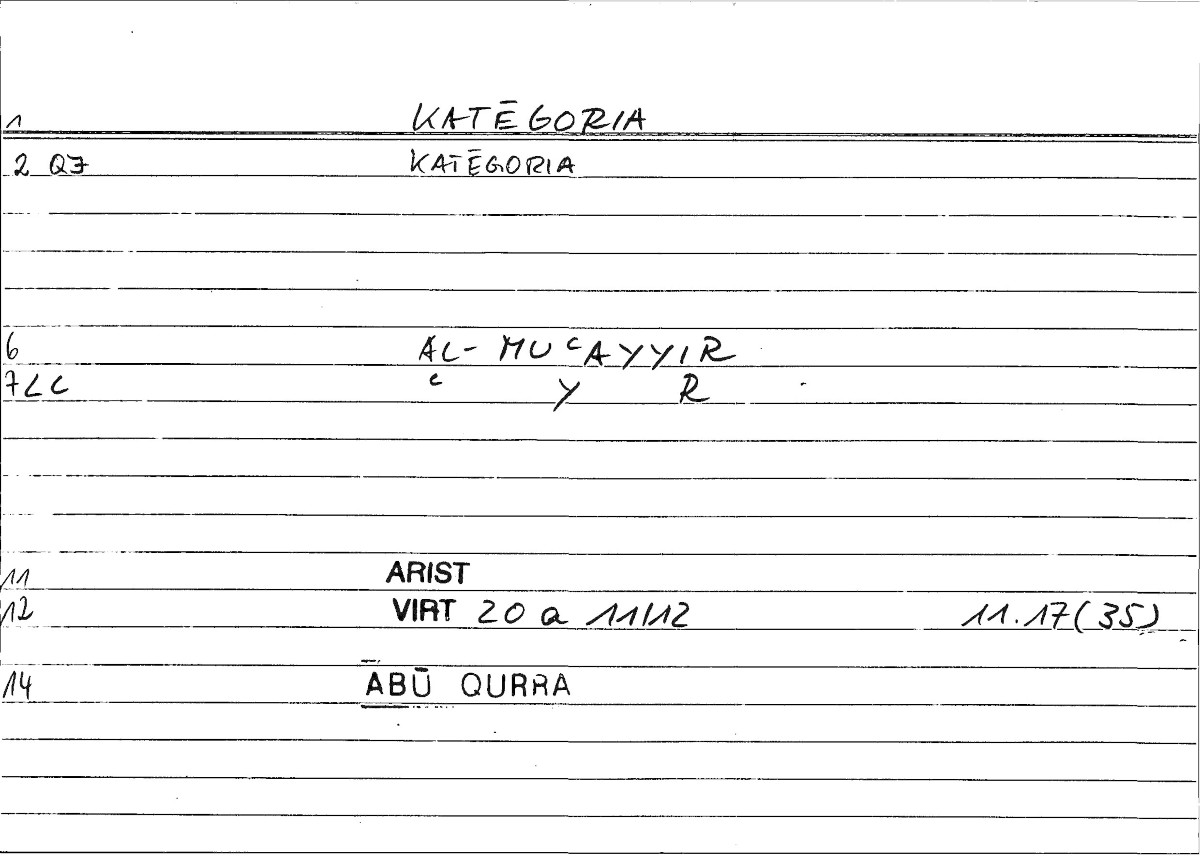 1 KATĒGORIA
2 QJ KATĒGORIA
6 AL-MUᶜAYYIR
7LC ᶜ Y R
11 ARIST
12 VIRT 20 a 11/12 11.17(35)
14 ABŪ QURRA